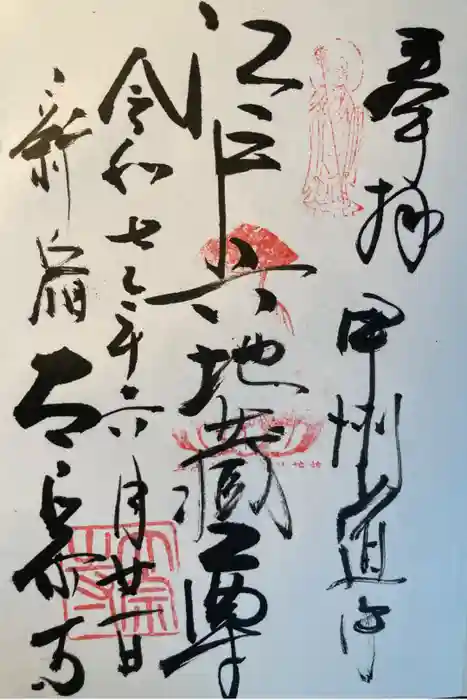 奉拝 甲州道中
江戸六地蔵尊
令和七乙年六月廿一日
新宿 太宗寺